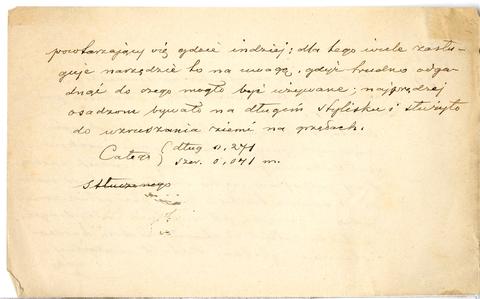 powtarzający się gdzie indziej; dla tego wiele zasłu-
guje narzędzie to na uwagę, gdyż trudno odga-
dnąć do czego mogło być używane; najprędzej
osadzom bywało na długim stylisku i służyło
do wzruszania ziemi na grzędach.
Całego { dług 0,271
szer. 0,071 m.
stłuczonego